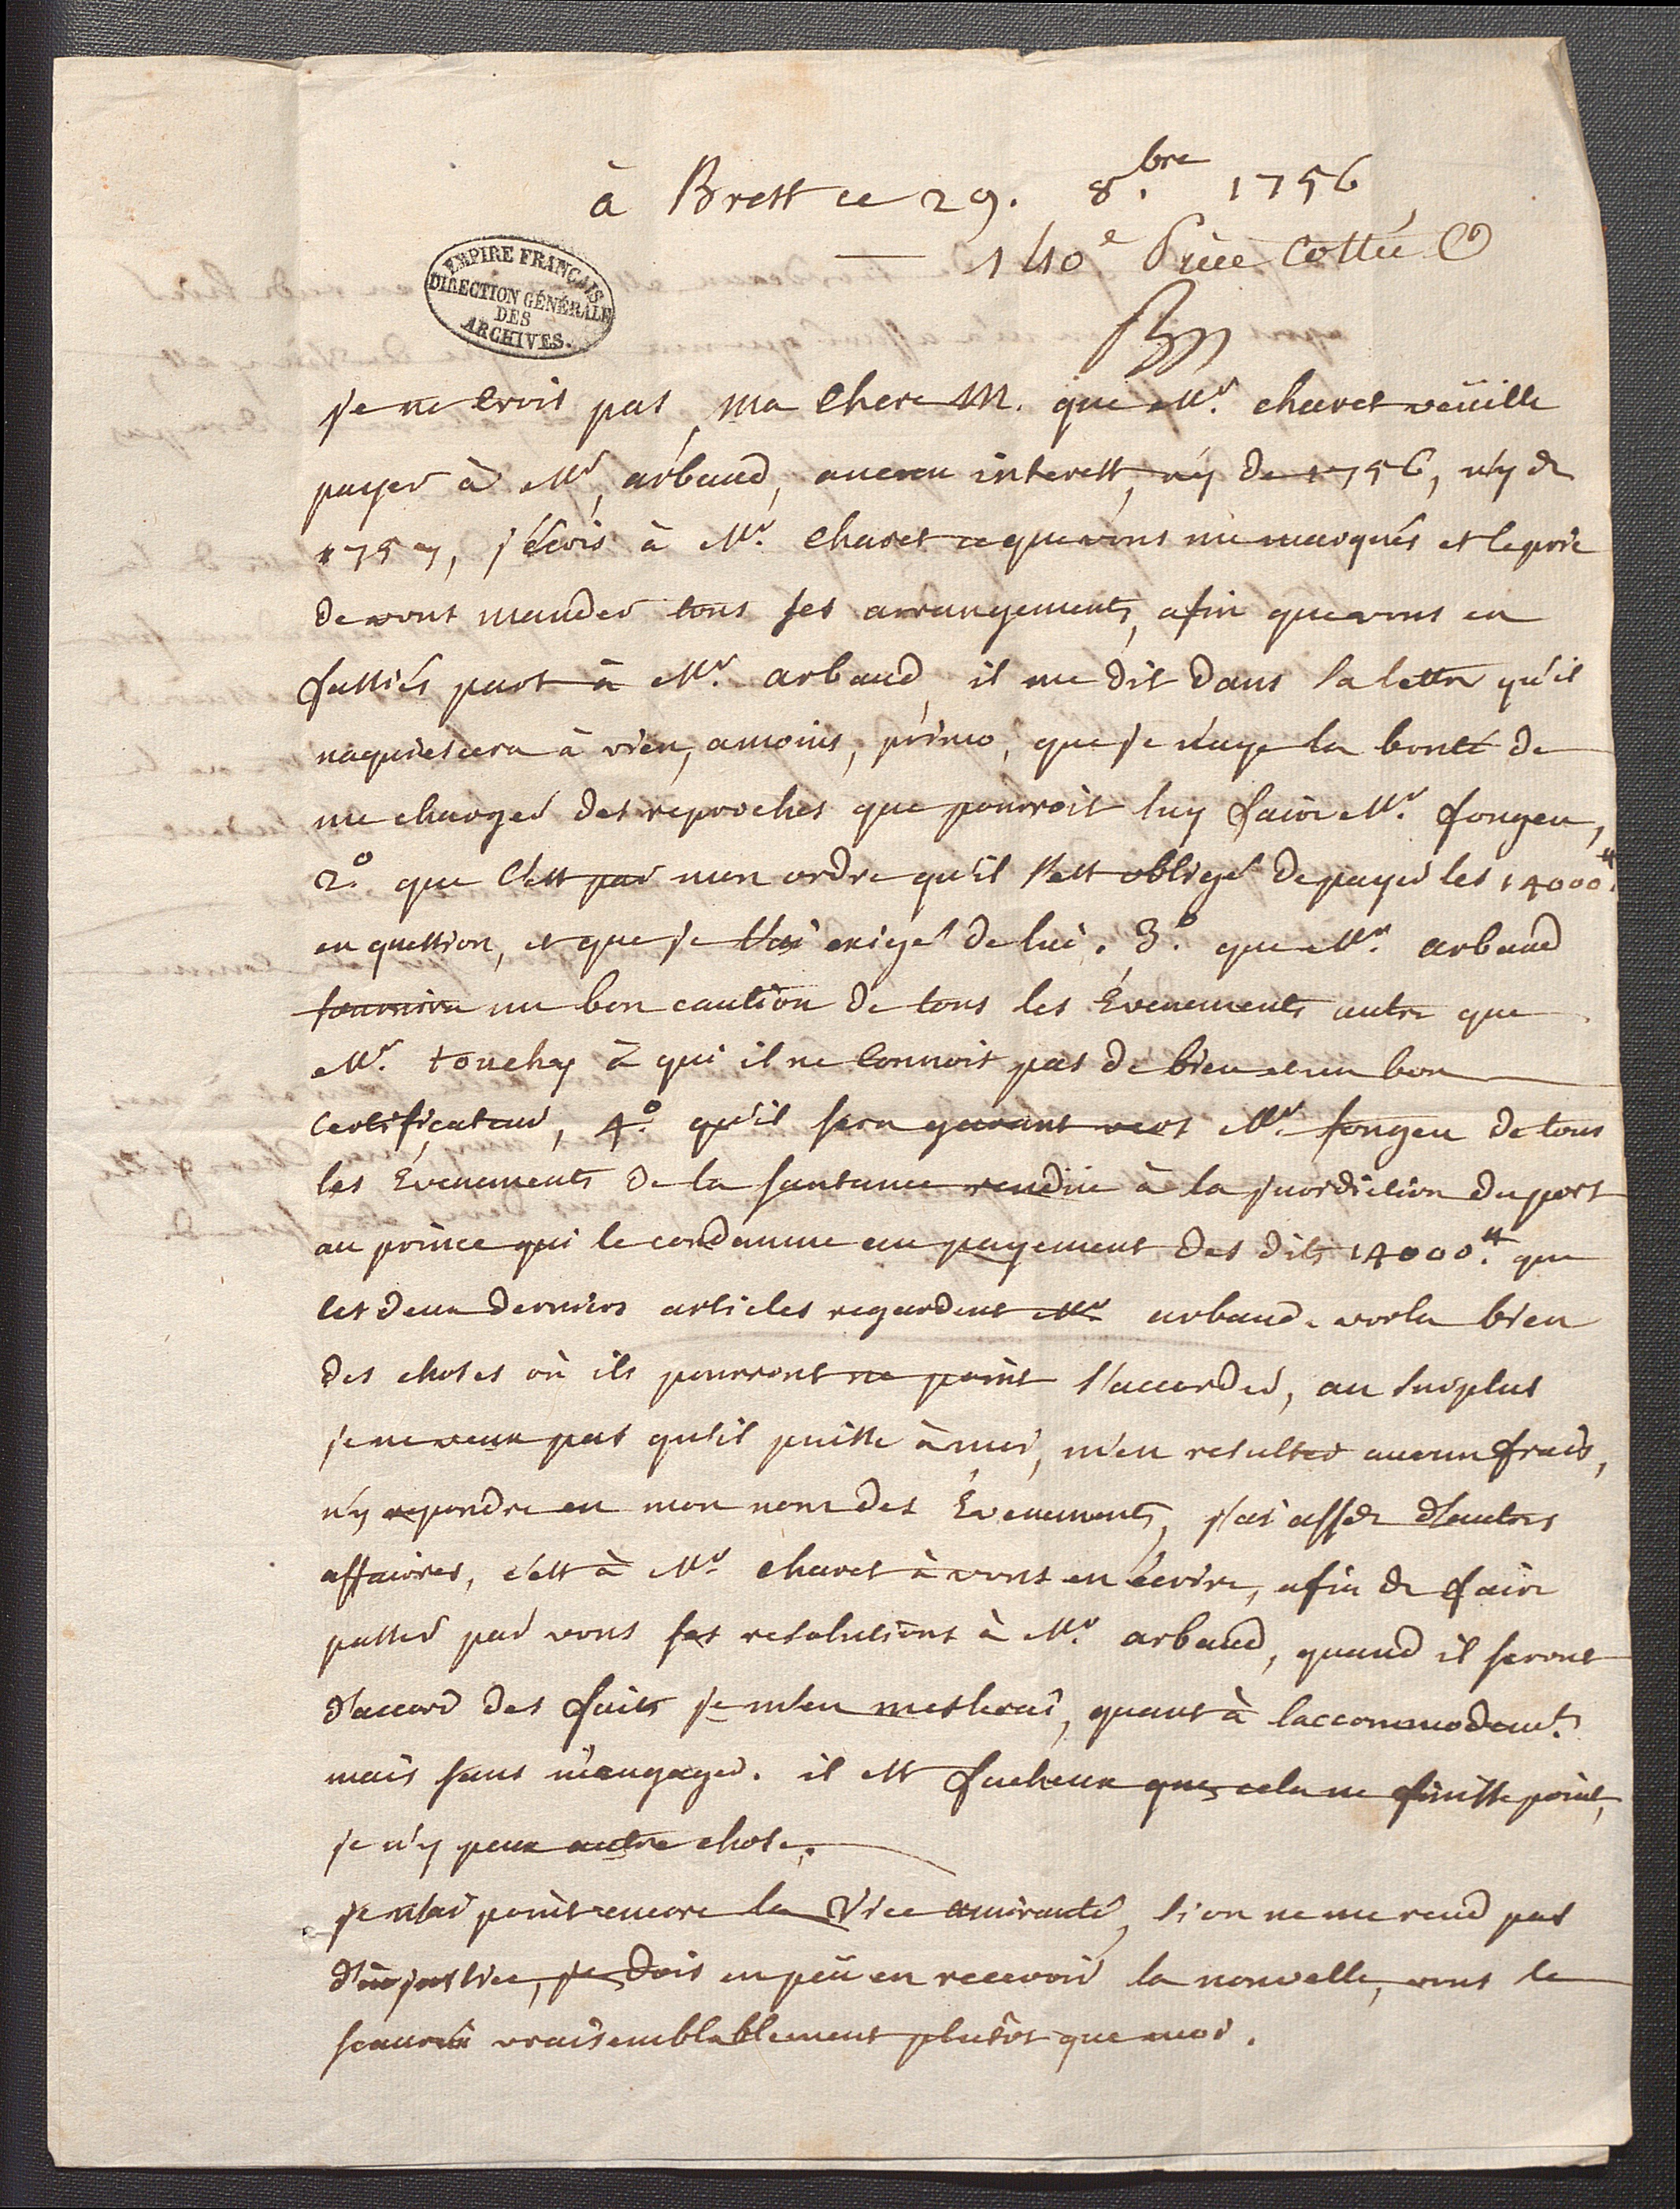 à Brest ce 29. 8.bre 1756
140e Piece Cottée
EMPIRE FRANÇAIS
DIRECTION GÉNÉRALE
DES
ARCHIVES.
je ne crois pas ma chere M. que Mr. charet veüille
payer à Mr. arbaud, aucun interest, n'y de 1756, n'y de
1757, j'écris à Mr. Charet ce que vous me marqués et le prie
de vous mander tous ses arrangements, afin que vous en
fassiés part à Mr. arbaud, il me dit dans sa lettre qu'il
n'aquiescera à rien, amoins, primo, que je n'aye la bonté de
me charger des reproches que pourroit luy faire Mr. fongeu,
2.o que c'est par mon ordre qu'il s'est obligé de payer les 14000.tt
en question, et que je l'ai exigé de lui. 3.o que Mr. arbaud
fournira un bon caution de tous les Évenements autre que
Mr. touchy à qui il ne connoit pas de bien et un bon
Certificateur, 4.o qu'il sera garant vers Mr. fongeu de tous
les Évenements de la santance rendüe à la jurdiction du port
au prince qui le condamne au payement des dits 14000.tt que
les deux derniers articles regardent Mr. arbaud. voila bien
des choses où ils pourront ne point s'accorder, au surplus
je ne veux pas qu'il puisse à moi, m'en resulter aucun frais,
n'y repondre en mon nom des Évenements, j'ai assés d'autres
affaires, c'est à Mr. charet à vous en écrire, afin de faire
passer par vous ses resolutions à Mr. arbaud, quand il seront
d'accord des faits je m'en meslerai, quant à laccommodemt.
mais sans m'engager. il est facheux que cela ne finisse point,
je n'y peux autre chose.
je n'ai point encore la Vice amirauté, si on ne me rend pas
d'injustice, je dois en peü en recevoir la nouvelle, vous le
scaurés vraisemblablement plutôt que moi.